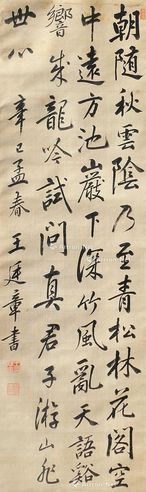 朝隨秋雲陰乃至青松林花閣空
中遠方池巖下深竹風亂天語谿
響成龍吟試問真君子游山非
世心 辛巳孟春 王廷章書